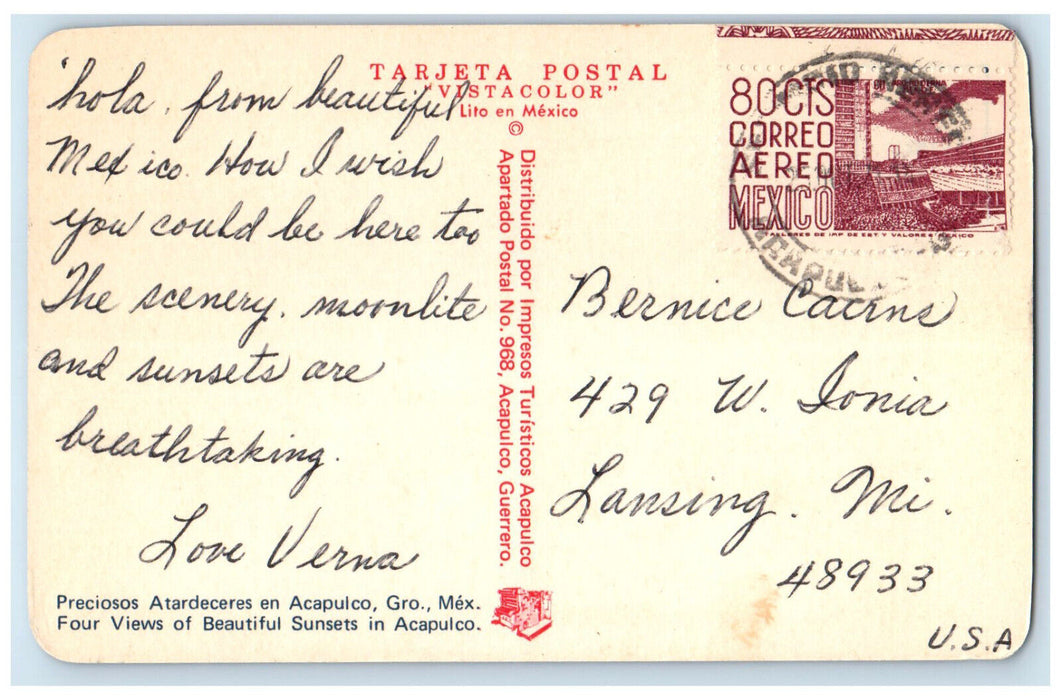 TARJETA POSTAL
"VISTACOLOR"
Lito en México
©
'hola, from beautiful
Mexico. How I wish
you could be here too
The scenery, moonlite
and sunsets are
breathtaking.
Love Verna
Preciosos Atardeceres en Acapulco, Gro., Méx.
Four Views of Beautiful Sunsets in Acapulco.
Distribuido por Impresos Turísticos Acapulco
Apartado Postal No. 968, Acapulco, Guerrero.
80 CTS
CORREO
AEREO
MEXICO
TALLERES DE IMP. DE EST. Y VALORES MEXICO
Bernice Cairns
429 W. Ionia
Lansing. Mi.
48933
U.S.A